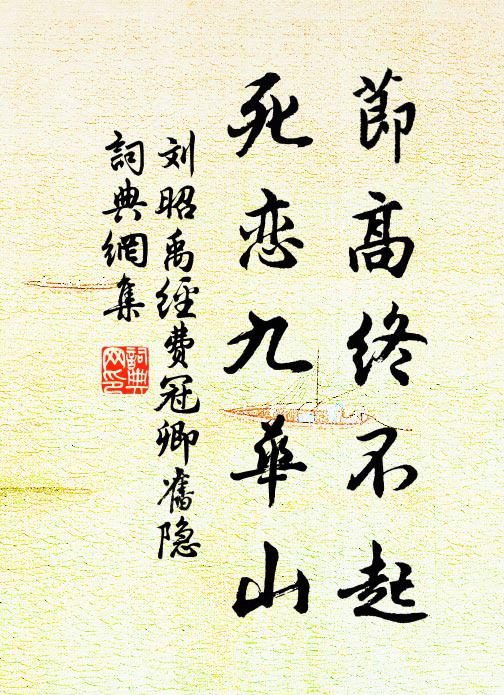 節高終不起
死恋九華山
刘昭禹經費冠卿舊隐
詞典網集
詞典网印